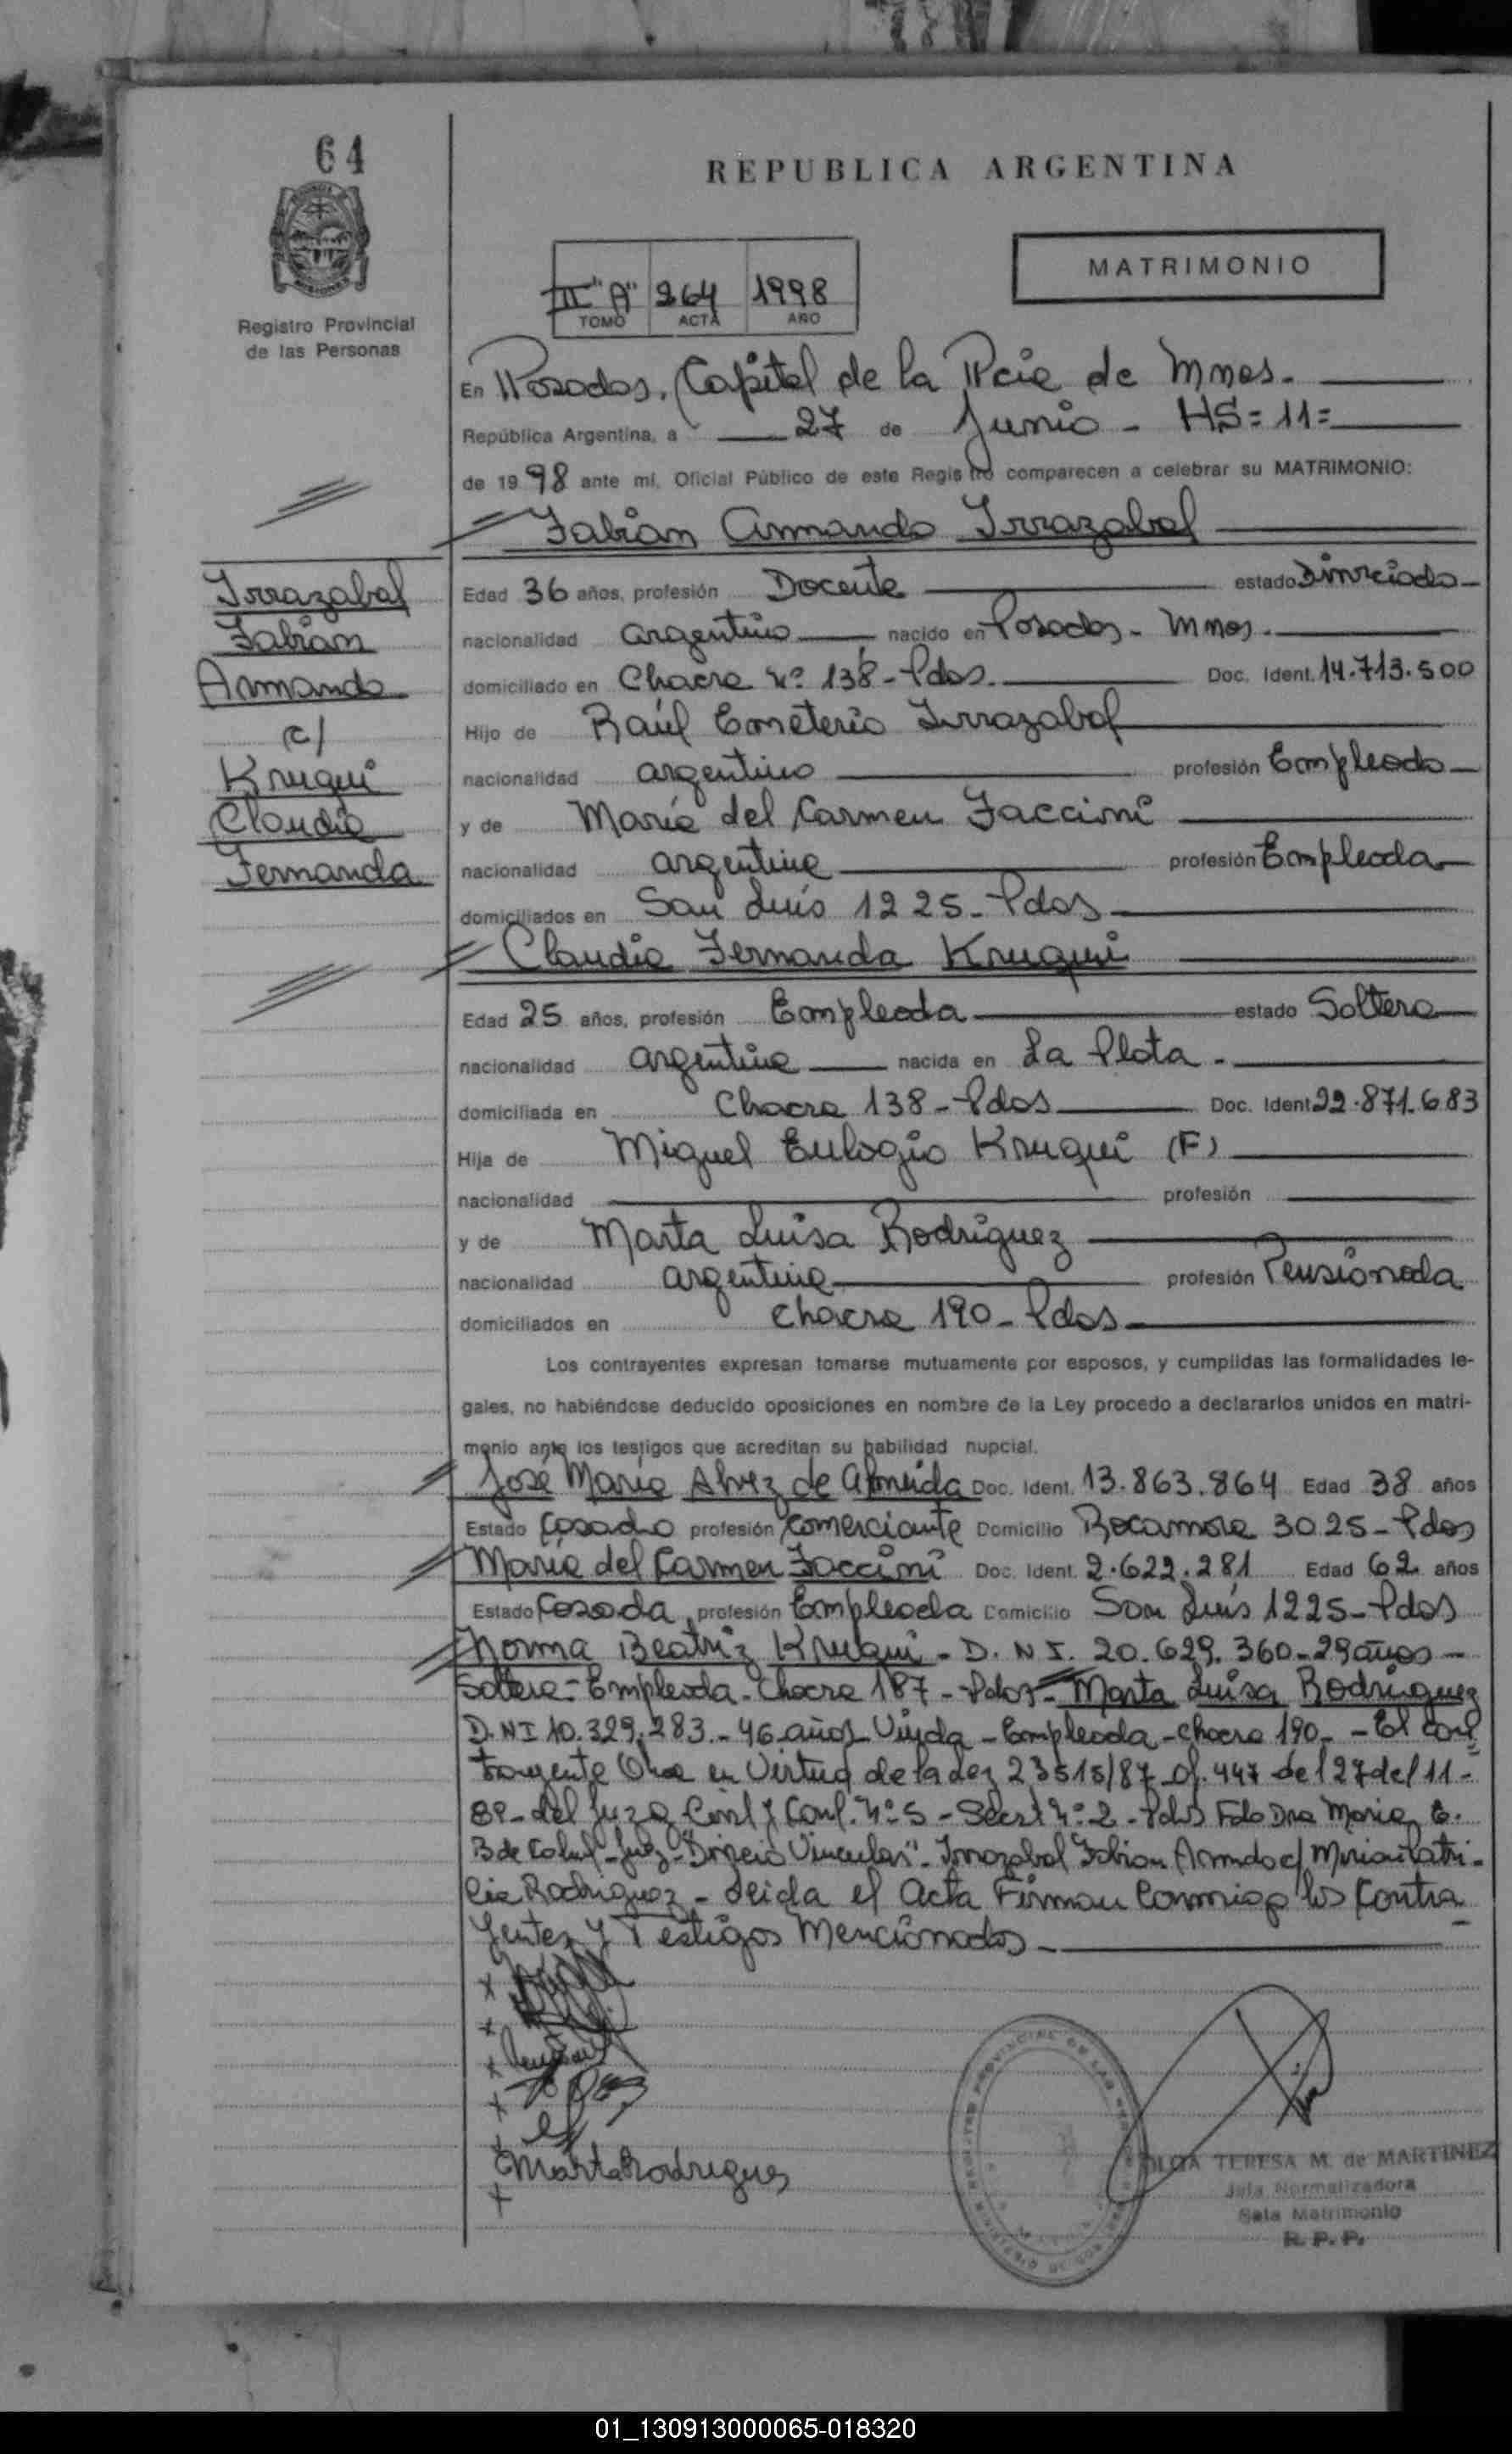 64
REPUBLICA ARGENTINA
MATRIMONIO
III "A" 264 1998
TOMO ACTA AÑO
Registro Provincial
de las Personas
En Posadas, Capital de la Pcia de Mnes.
República Argentina, a 27 de Junio - HS = 11 =
de 1998 ante mí, Oficial Público de este Registro comparecen a celebrar su MATRIMONIO:
Fabian Armando Irrazabal
Irrazabal
Fabian
Armando
c/
Kruqui
Claudia
Fernanda
Edad 36 años, profesión Docente estado Divorciado
nacionalidad argentino nacido en Posadas - Mnes.
domiciliado en Chacra Nº 138 - Pdas. Doc. Ident. 14.713.500
Hijo de Raúl Emeterio Irrazabal
nacionalidad argentino profesión Empleado
y de María del Carmen Faccioni
nacionalidad argentina profesión Empleada
domiciliados en San Luis 1225 - Pdas
Claudia Fernanda Kruqui
Edad 25 años, profesión Empleada estado Soltera
nacionalidad argentina nacida en La Plata -
domiciliada en Chacra 138 - Pdas Doc. Ident 22.871.683
Hija de Miguel Eulogio Kruqui (F)
nacionalidad profesión
y de Marta Luisa Rodriguez
nacionalidad argentina profesión Pensionada
domiciliados en Chacra 190 - Pdas
Los contrayentes expresan tomarse mutuamente por esposos, y cumplidas las formalidades le-
gales, no habiéndose deducido oposiciones en nombre de la Ley procedo a declararlos unidos en matri-
monio ante los testigos que acreditan su habilidad nupcial.
José María Alvez de Almeida Doc. Ident. 13.863.864 Edad 38 años
Estado Casado profesión Comerciante Domicilio Rocamora 3025 - Pdas
María del Carmen Faccioni Doc. Ident. 2.622.281 Edad 62 años
Estado Casada profesión Empleada Domicilio San Luis 1225 - Pdas
Norma Beatriz Kruqui - D.N.I. 20.629.360 - 29 años -
Soltera - Empleada - Chacra 187 - Pdas - Marta Luisa Rodriguez
D.NI 10.329.283. - 46 años - Viuda - Empleada - Chacra 190 - - El con
trayente en Virtud de la Ley 23515/87 - Of. 447 del 27 del 11 -
89 - del Juzg Civil y Com. Nº 5 - Secret Nº 2 - Pdas Fdo Dra Maria E.
B de - Juez - Vincular" - Irrazabal Fabian Armando c/ Miriam Patri-
cia Rodriguez - Leida el Acta Firman Conmigo los Contra
yentes y Testigos Mencionados -
Marta Rodrigues
OLGA TERESA M. de MARTINEZ
Jefa Normalizadora
Sala Matrimonio
R. P. P.
01_130913000065-018320